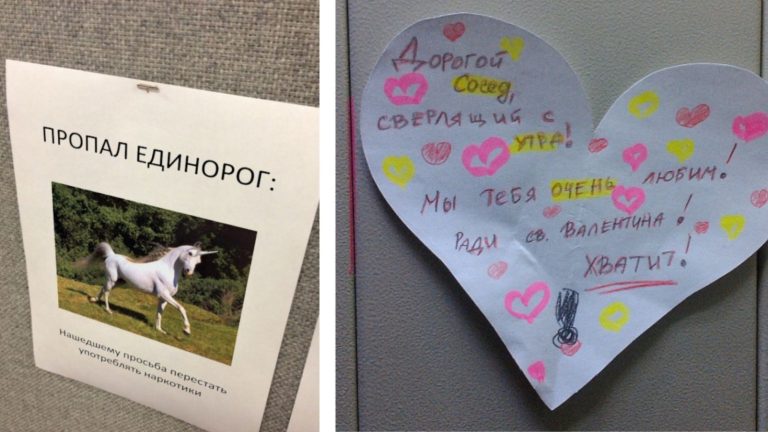 ПРОПАЛ ЕДИНОРОГ:
Нашедшему просьба перестать
употреблять наркотики
Дорогой
Сосед,
сверлящий с
утра!
Мы тебя очень любим!
Ради св. Валентина!
Хватит!